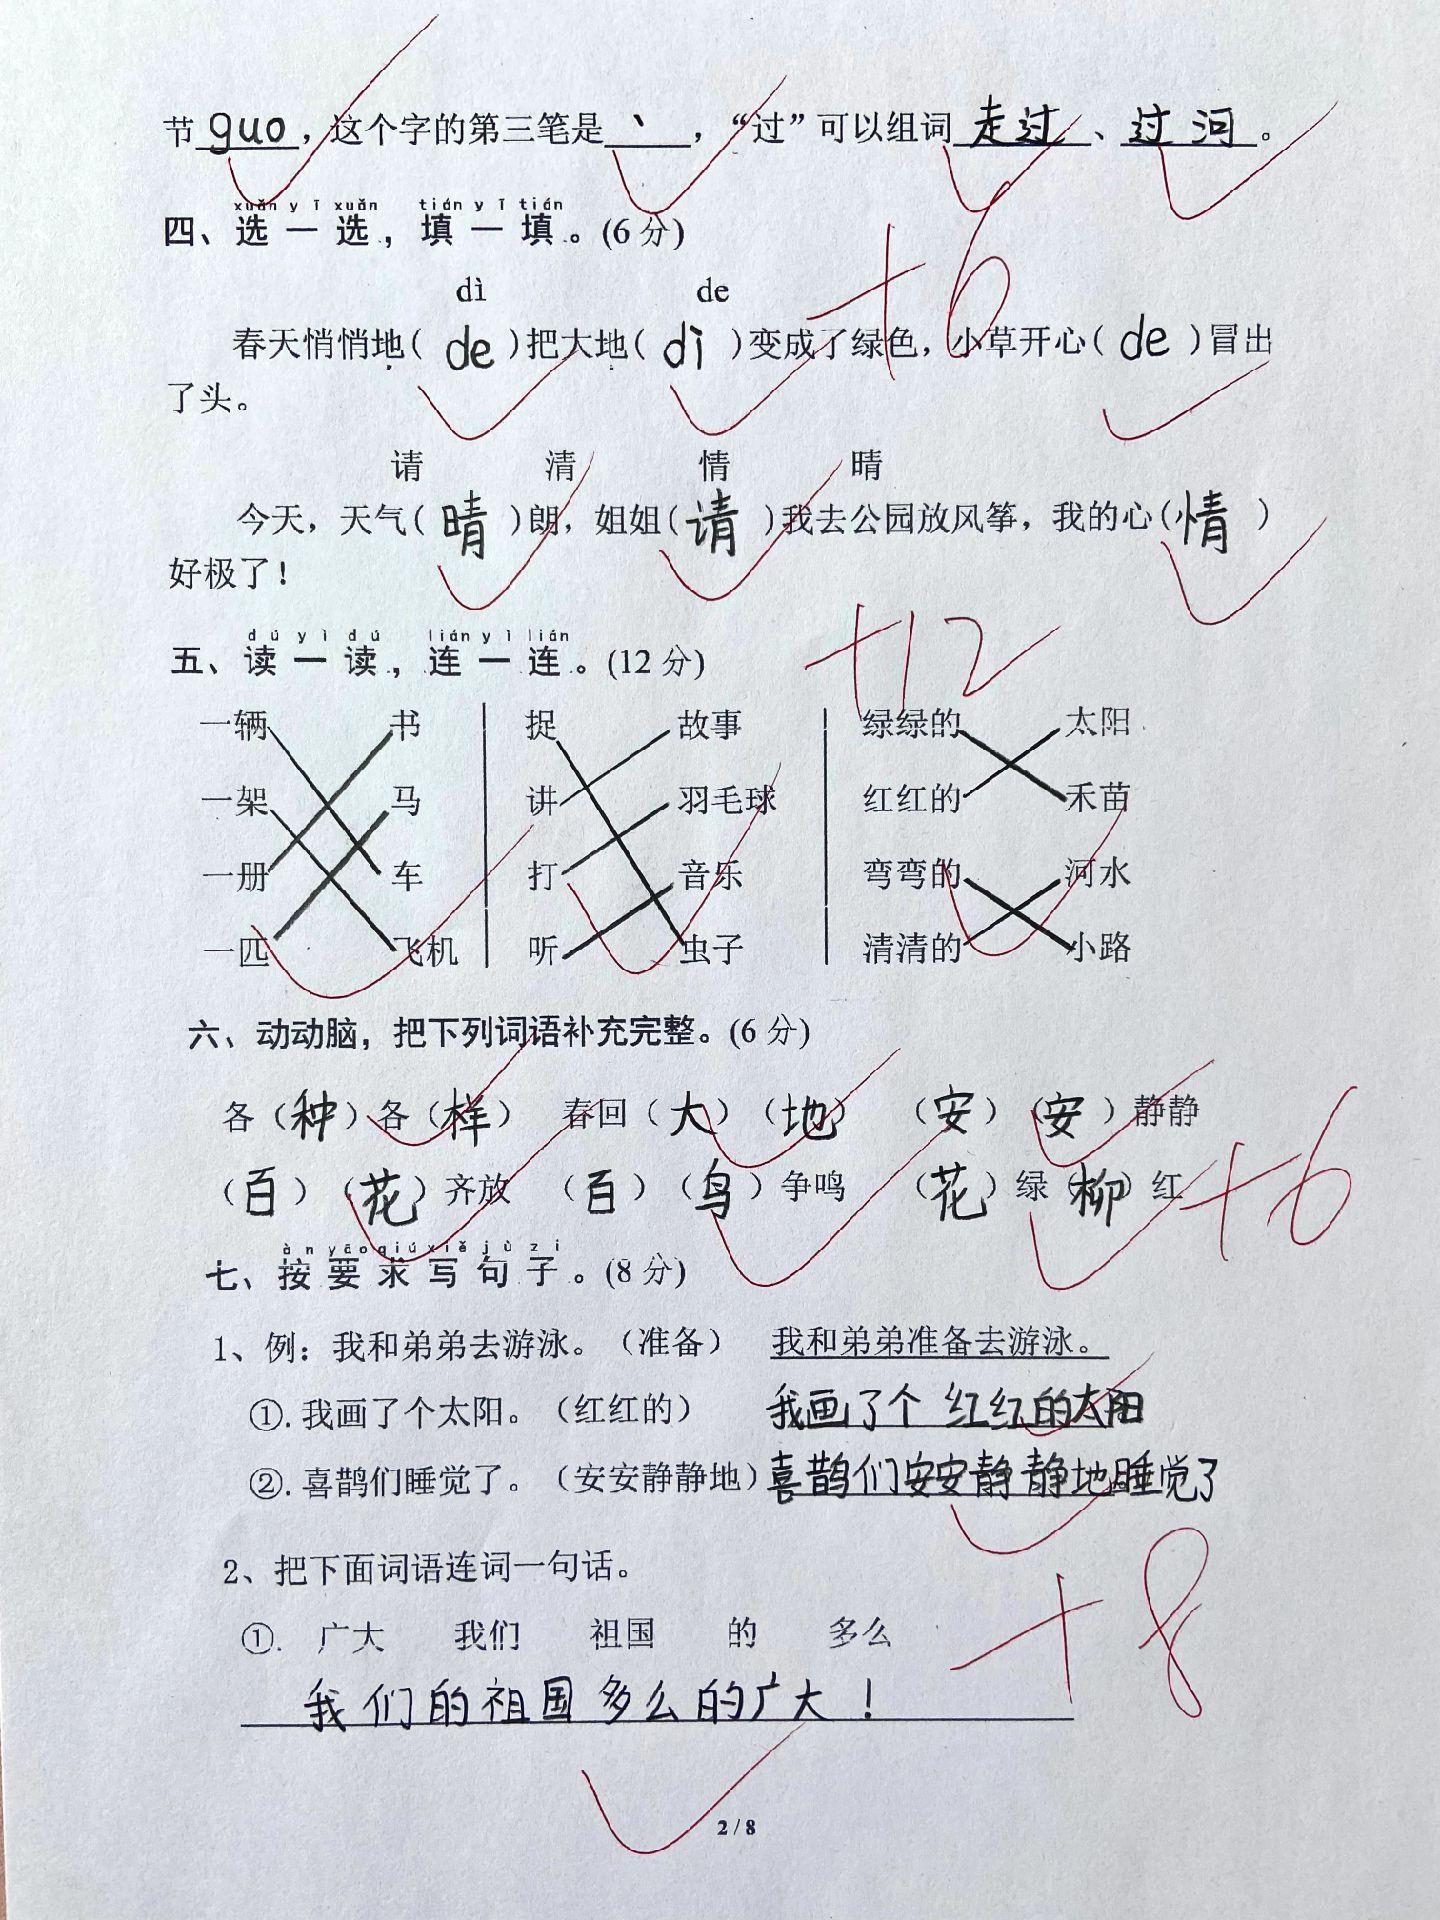 节guo，这个字的第三笔是丶，“过”可以组词走过、过河。
xuǎn yī xuǎn tián yī tián
四、选一选，填一填。(6分)
+6
dì de
春天悄悄地(de)把大地(dì)变成了绿色，小草开心(de)冒出
了头。
请 清 情 晴
今天，天气(晴)朗，姐姐(请)我去公园放风筝，我的心(情)
好极了！
dú yì dú lián yì lián
五、读一读，连一连。(12分)
+12
一辆 书 捉 故事 绿绿的 太阳
一架 马 讲 羽毛球 红红的 禾苗
一册 车 打 音乐 弯弯的 河水
一匹 飞机 听 虫子 清清的 小路
六、动动脑，把下列词语补充完整。(6分)
各（种）各（样） 春回（大）（地） （安）（安）静静
（百）（花）齐放 （百）（鸟）争鸣 （花）绿（柳）红
+6
àn yāo qiú xiě jù zi
七、按要求写句子。(8分)
1、例：我和弟弟去游泳。（准备） 我和弟弟准备去游泳。
①.我画了个太阳。（红红的） 我画了个红红的太阳
②.喜鹊们睡觉了。（安安静静地）喜鹊们安安静静地睡觉了
2、把下面词语连词一句话。
①. 广大 我们 祖国 的 多么
+8
我们的祖国多么的广大！
2/8